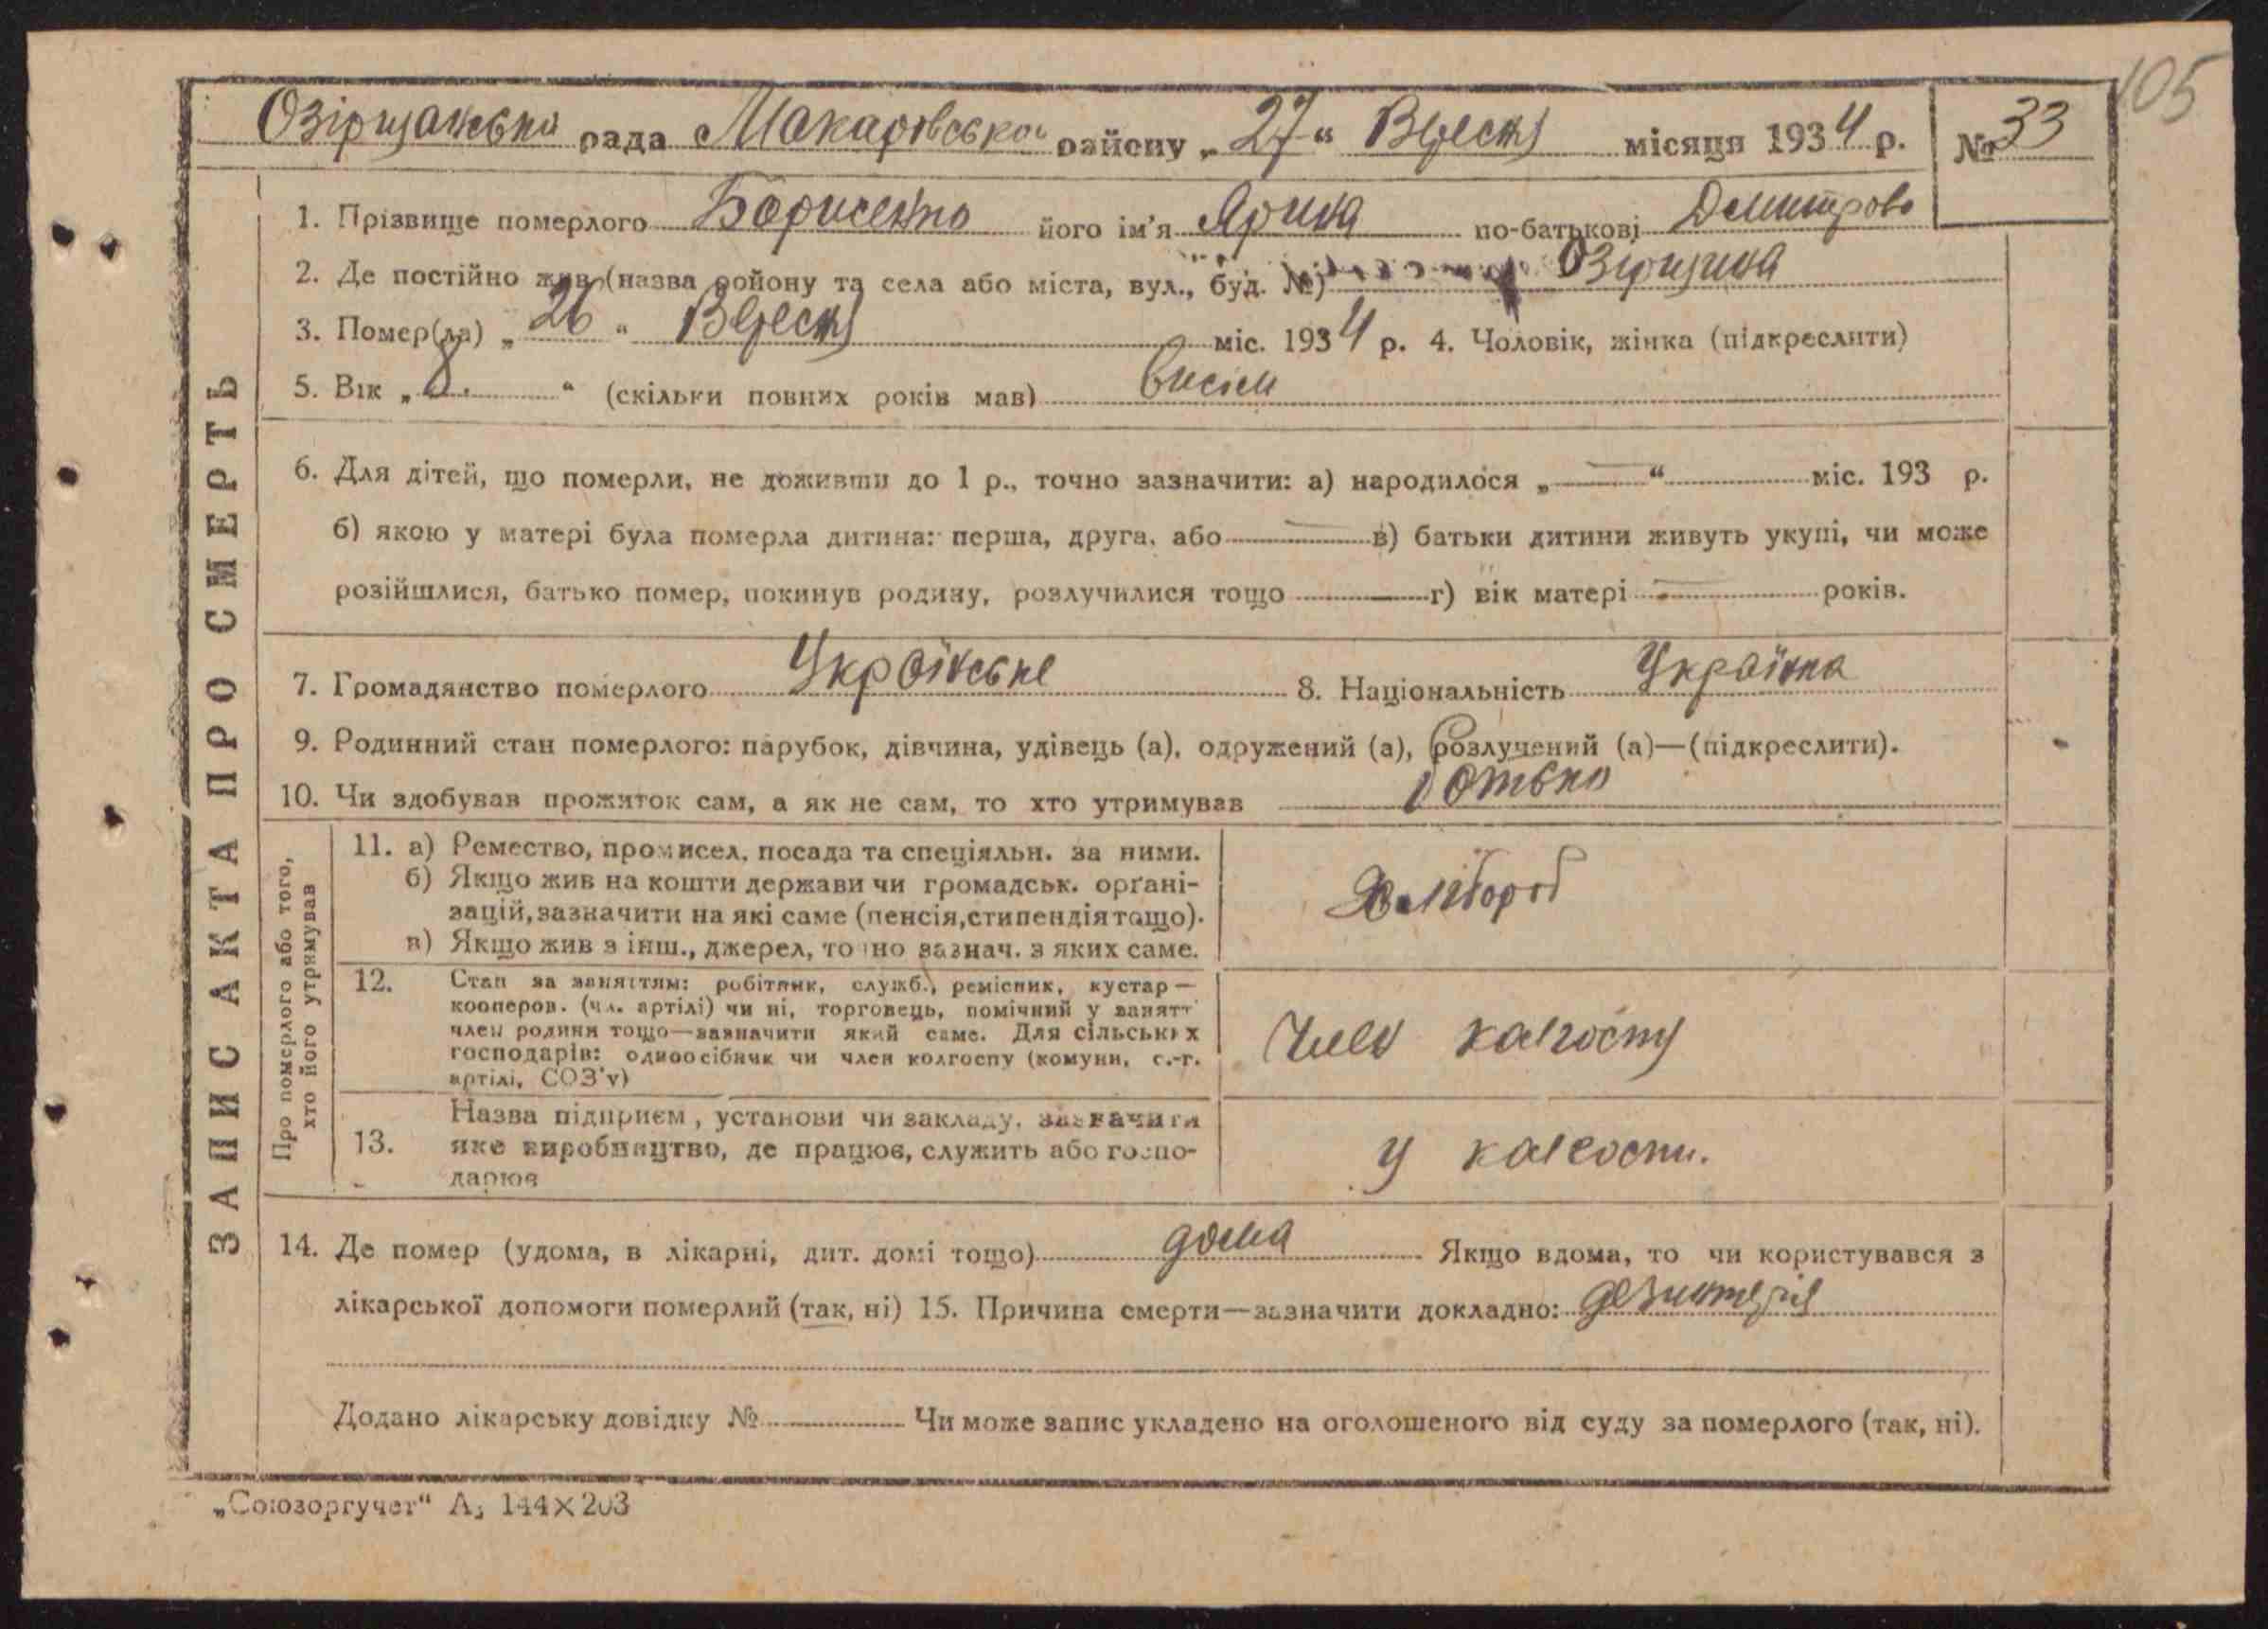 105
Озірщанська рада Макарівської району „27“ Вересня місяця 1934 р. № 33
ЗАПИС АКТА ПРО СМЕРТЬ
1. Прізвище померлого Борисенко його ім’я Ярина по-батькові Демитрова
2. Де постійно жив (назва району та села або міста, вул., буд. №) Озірщина
3. Помер(ла) „26“ Вересня міс. 1934 р. 4. Чоловік, жінка (підкреслити)
5. Вік „8.“ (скільки повних років мав) висім
6. Для дітей, що померли, не доживши до 1 р., точно зазначити: а) народилося „—“ міс. 193 р.
б) якою у матері була померла дитина: перша, друга, або — в) батьки дитини живуть укупі, чи може
розійшлися, батько помер, покинув родину, розлучилися тощо — г) вік матері — років.
7. Громадянство померлого Українське 8. Національність Українка
9. Родинний стан померлого: парубок, дівчина, удівець (а), одружений (а), розлучений (а)—(підкреслити).
10. Чи здобував прожиток сам, а як не сам, то хто утримував батько
Про померлого або того,
хто його утримував
11. а) Ремество, промисел, посада та спеціяльн. за ними.
б) Якщо жив на кошти держави чи громадськ. орґані-
зацій, зазначити на які саме (пенсія, стипендія тощо).
в) Якщо жив з інш., джерел, точно зазнач. з яких саме.
Хлібороб
12. Стан за заняттям: робітник, служб., ремісник, кустар —
кооперов. (чл. артілі) чи ні, торговець, помічний у занятт
член родини тощо—зазначити який саме. Для сільських
господарів: одноосібник чи член колгоспу (комуни, с.-г.
артілі, СОЗ’у)
Член калгоспу
13. Назва підприєм, установи чи закладу, зазначити
яке виробництво, де працює, служить або госпо-
дарює
У калгоспи.
14. Де помер (удома, в лікарні, дит. домі тощо) дома Якщо вдома, то чи користувався з
лікарської допомоги померлий (так, ні) 15. Причина смерти—зазначити докладно: дезинтерія
Додано лікарську довідку № Чи може запис укладено на оголошеного від суду за померлого (так, ні).
„Союзоргучет“ А₅ 144×203